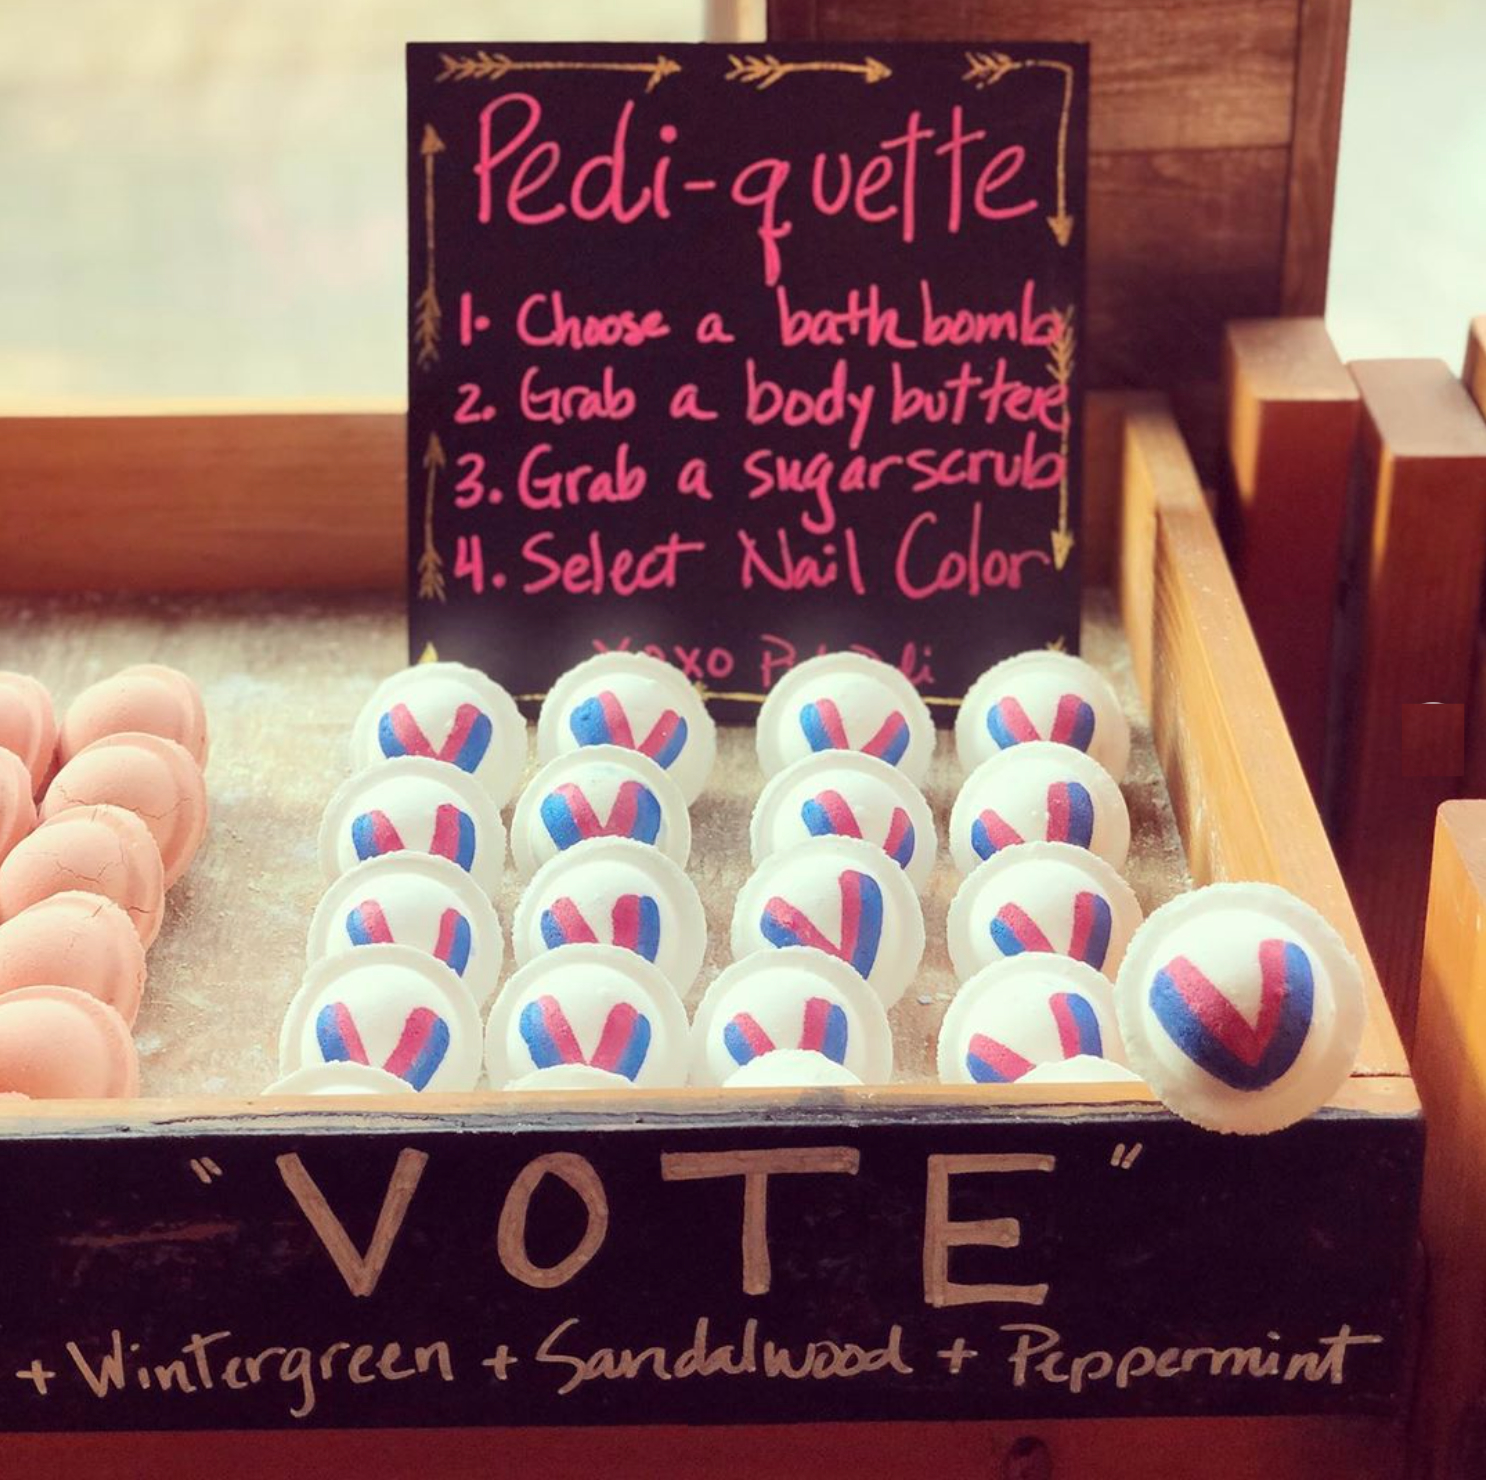 Pedi-quette
1. Choose a bath bomb
2. Grab a body butter
3. Grab a sugar scrub
4. Select Nail Color
XOXO
"VOTE"
+ Wintergreen + Sandalwood + Peppermint